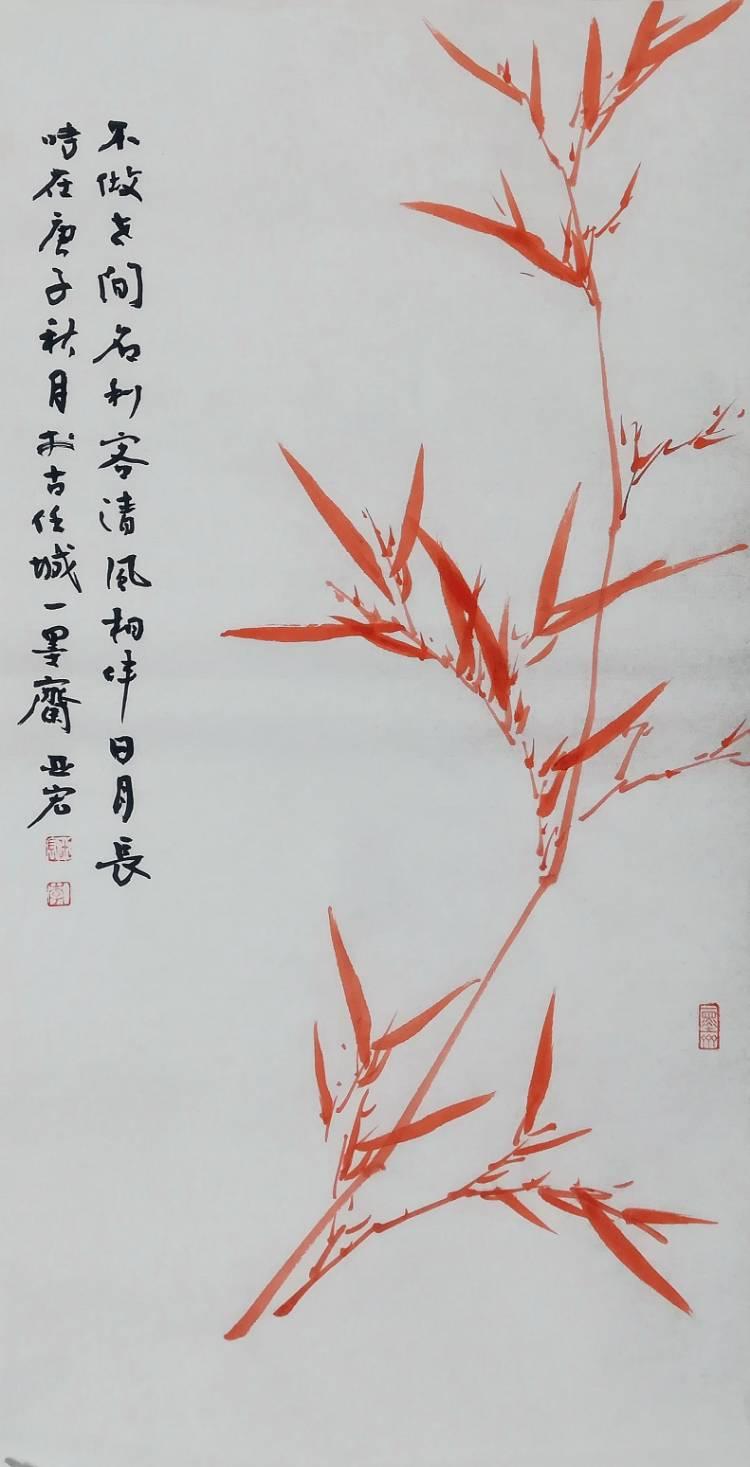 不做世间名利客清風相伴日月長
時在庚子秋月於古任城一墨齋 亚宏